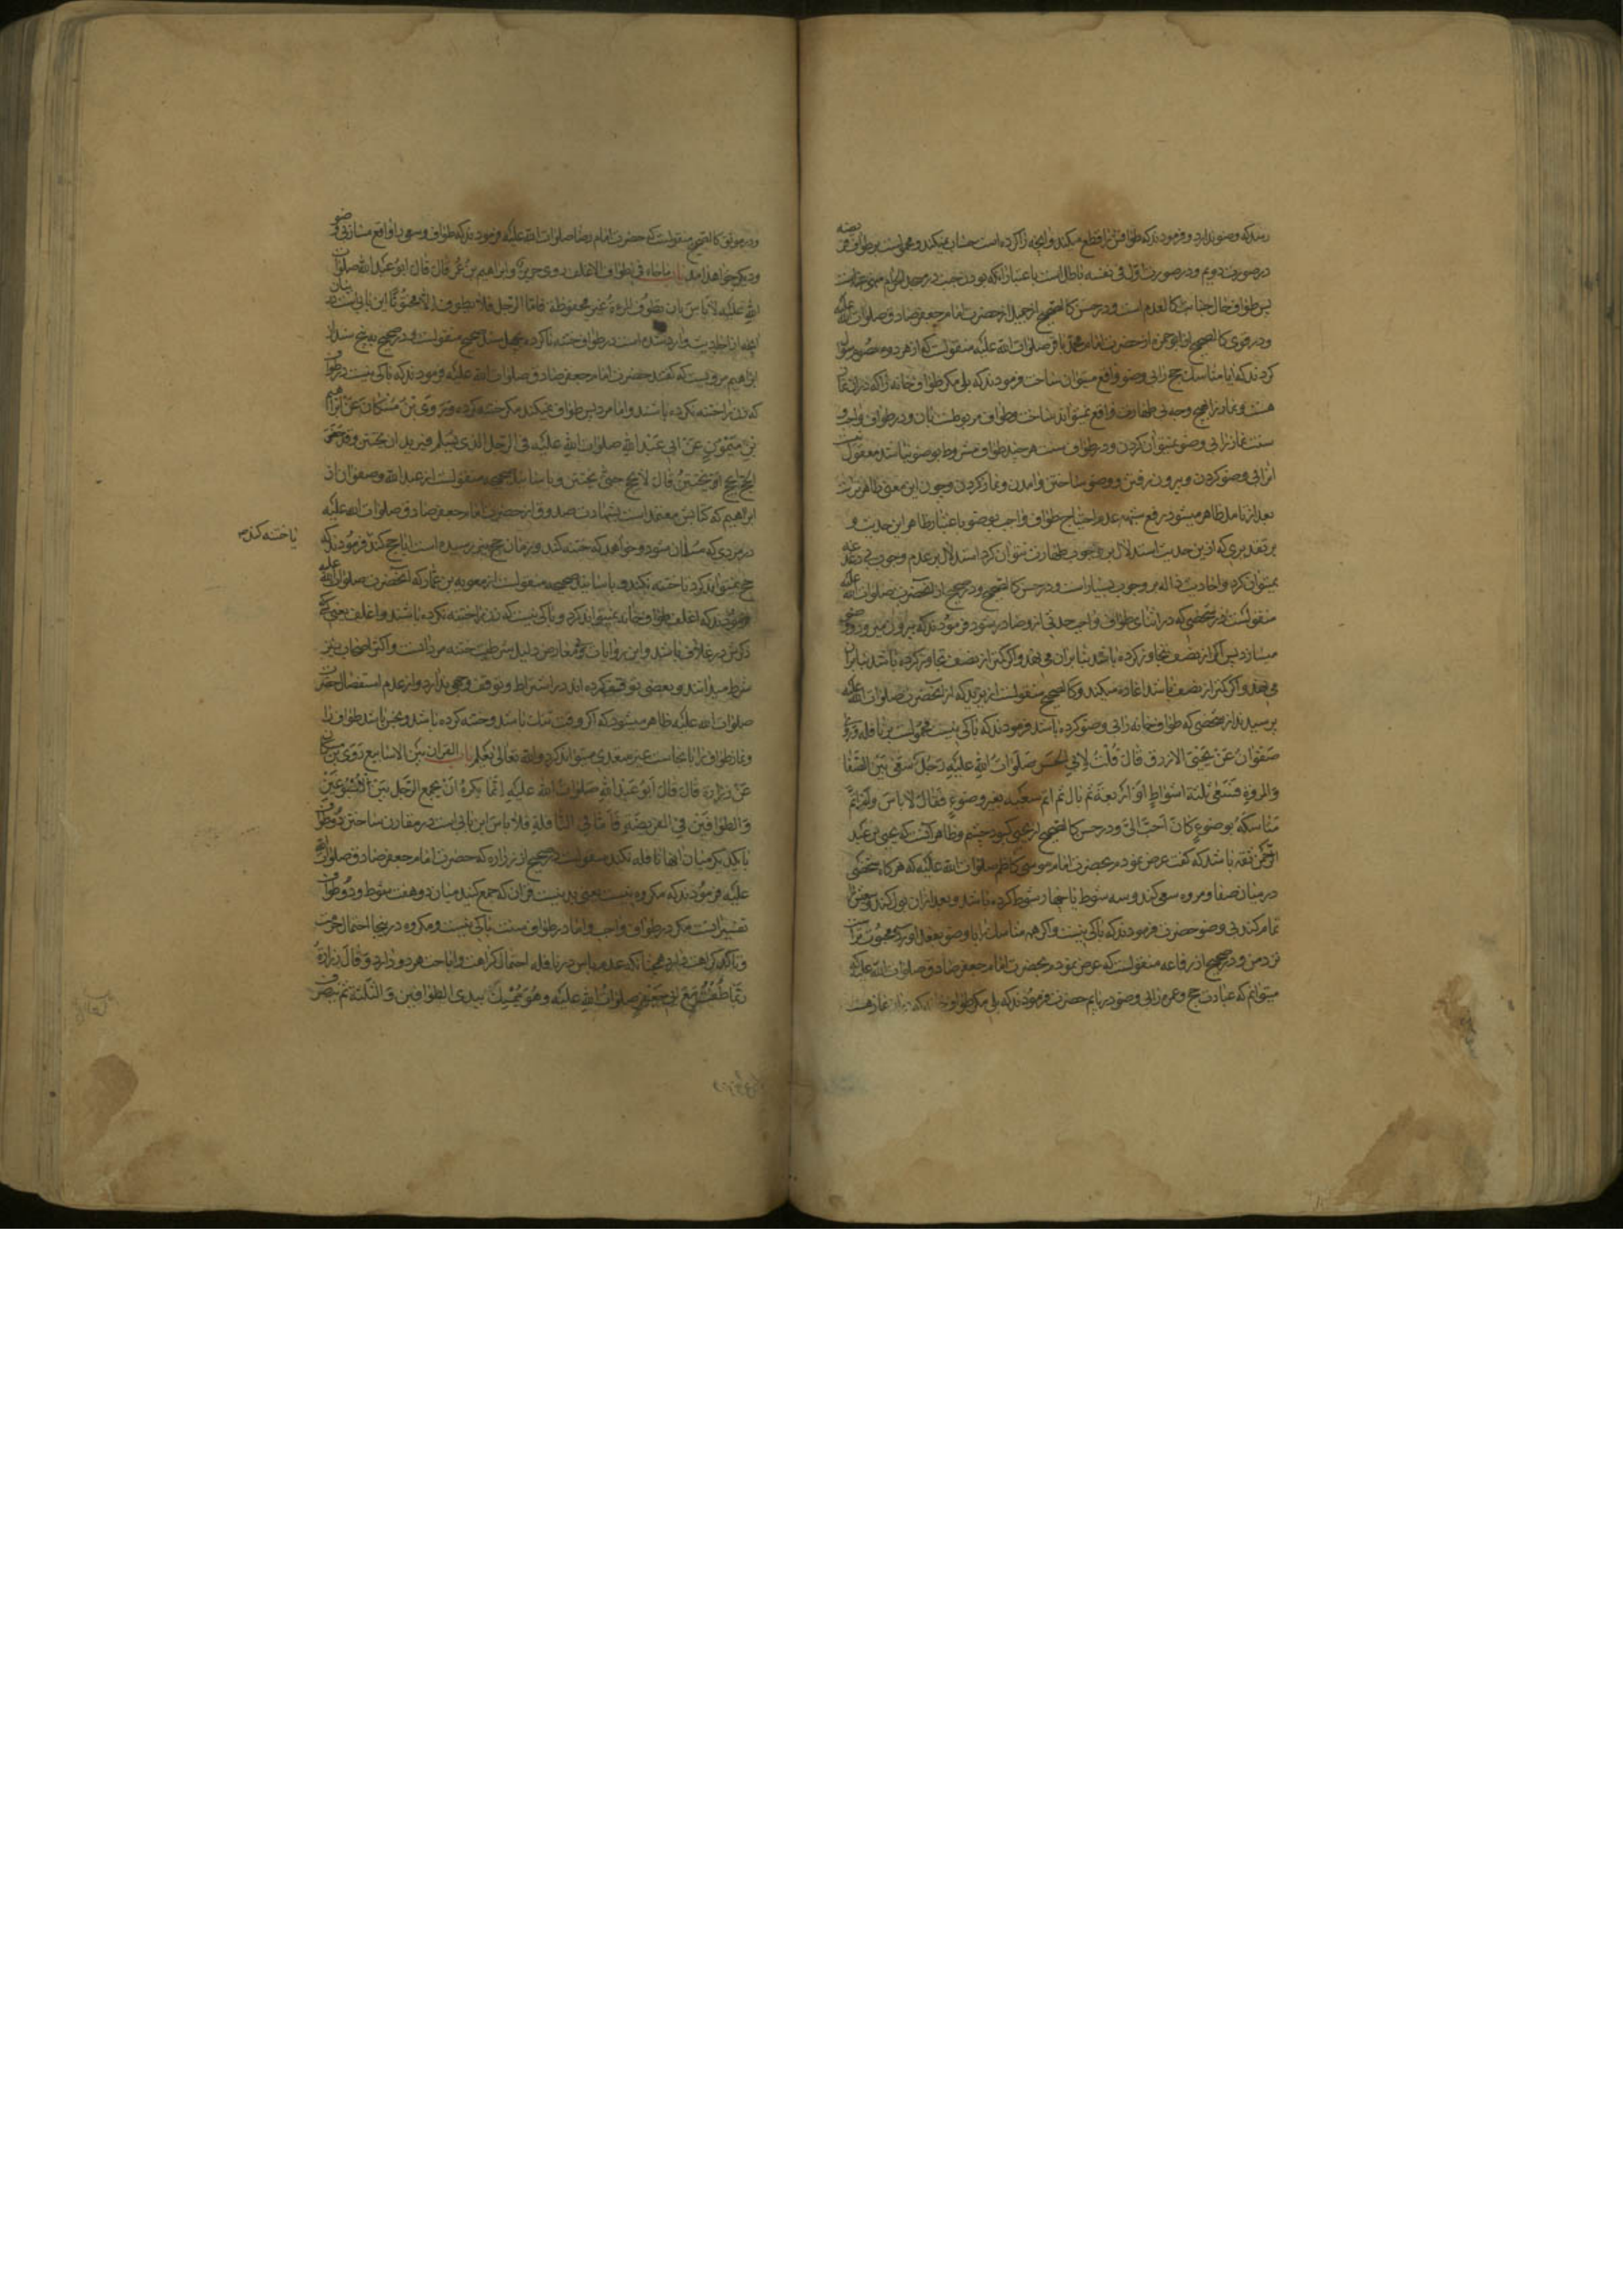 رسد که وضو ندارد و فرمودند که طوافش را قطع میکند و آنچه را کرده است حساب نمیکند و محمولست بر طواف فریضه
در صورت دویم و در صورت اول فی نفسه باطل است باعتبار آنکه بودن جنب در مسجد الحرام ممنوعست
پس طواف حال جنابت کالعدم است و در حسن کالصحیح از جمیل از حضرت امام جعفر صادق صلوات الله علیه
و در قوی کالصحیح از ابو حمزه از حضرت امام محمد باقر صلوات الله علیه منقولست که از هر دو معصوم سؤال
کردند که ایا مناسک حج را بی وضو واقع میتوان ساخت فرمودند که بلی مگر طواف خانه را که در ان نماز
هست و نماز را هیچ وجه بی طهارت واقع نمیتواند ساخت و طواف مربوطست بان و در طواف واجب و
سنت نماز را بی وضو نمیتوان کردن و در طواف سنت هر چند طواف مشروط بوضو نباشد معقول نیست
انرا بی وضو کردن و بیرون رفتن و وضو ساختن و امدن و نماز کردن و چون این معنی ظاهر نیست
بعد از تامل ظاهر میشود رفع شبهه عدم احتیاج طواف واجب بوضو باعتبار ظاهر این حدیث و
بر تقدیری که ازین حدیث استدلال بر وجوب طهارت نتوان کرد استدلال بر عدم وجوب بی دغدغه
نمیتوان کرد و احادیث داله بر وجوب بسیار است و در حسن کالصحیح و در صحیح از آنحضرت صلوات الله علیه
منقولست در شخصی که در اثنای طواف واجب حدثی ازو صادر شود فرمودند که بیرون میرود و وضو
میسازد پس اگر از نصف تجاوز کرده باشد بنا بران می نهد و اگر کمتر از نصف تجاوز کرده باشد بنا بران
می نهد و اگر کمتر از نصف باشد اعاده میکند و کالصحیح منقولست از یزید که از آنحضرت صلوات الله علیه
پرسیدند از شخصی که طواف خانه را بی وضو کرده باشد فرمودند که باکی نیست محمولست بر نافله وروی
صفوان عن یحیی الازرق قال قلت لابی الحسن صلوات الله علیه رجل سعی بین الصفا
والمروة فسعی ثلثة اشواط او اربعة ثم بال ثم اتم سعیه بغیر وضوء فقال لا باس ولو اتم
مناسکه بوضوء کان احب الی و در حسن کالصحیح از یحیی کبود چشم و ظاهر آنست که یحیی بن عبد
الرحمن ثقه باشد که گفت عرض نمودم بحضرت امام موسی کاظم صلوات الله علیه که هر گاه شخصی
در میان صفا و مروه سعی کند و سه شوط یا چهار شوط کرده باشد و بعد ازان بول کند و سعیش را
تمام کند بی وضو حضرت فرمودند که باکی نیست و اگر همه مناسک را با وضو بفعل آورد محبوب تر است
نزد من و در صحیح از رفاعه منقولست که عرض نمودم بحضرت امام جعفر صادق صلوات الله علیه که
میتوانم که عبادت حج و عمره را بی وضو دریابم حضرت فرمودند که بلی مگر طواف خانه که نماز هست
و در موثق کالصحیح منقولست که حضرت امام رضا صلوات الله علیه فرمودند که طواف و سعی را واقع مساز بی وضو
و دیگر خواهد امد باب ما جاء فی طواف الاغلف روی حریز و ابراهیم بن عمر قال قال ابو عبد الله صلوات
الله علیه لا باس بان تطوف المرءة غیر مخفوضة فاما الرجل فلا یطوف الا مختونا این بابیست در بیان
آنچه از احادیث وارد شده است در طواف ختنه ناکرده بچهل سند صحیح منقولست و در صحیح به پنج سند از
ابراهیم مرویست که گفتند حضرت امام جعفر صادق صلوات الله علیه فرمودند که باکی نیست در طواف
که زن را ختنه نکرده باشند و اما مرد پس طواف نمیکند مگر ختنه کرده وروی بن مسکان عن ابراهیم
بن میمون عن ابی عبد الله صلوات الله علیه فی الرجل الذی یسلم فیرید ان یختتن وقد حضر
الحج ایحج او یختتن قال لا یحج حتی یختتن و باسانید صحیحه منقولست از عبد الله و صفوان از
ابراهیم که کتابش معتمد است بشهادت صدوق از حضرت امام جعفر صادق صلوات الله علیه
در مردی که مسلمان شود و خواهد که ختنه کند و زمان حج هم رسیده است ایا حج کند فرمودند که
یا ختنه کند
حج نمیتواند کرد تا ختنه نکند و باسانید صحیحه منقولست از معویه بن عمار که آنحضرت صلوات الله علیه
فرمودند که اغلف طواف خانه نمیتواند کرد و باکی نیست که زن را ختنه نکرده باشند و اغلف یعنی که
ذکرش در غلاف باشد و این روایات بی معارض دلیل شرطیت ختنه مردانست و اکثر اصحاب نیز
شرط میدانند و بعضی توقف کرده اند در اشتراط و توقف وجهی ندارد و از عدم استفصال حضرت
صلوات الله علیه ظاهر میشود که اگر وقت تنگ باشد و ختنه کرده باشد و نجس باشد طواف را
و نماز طواف را با نجاست غیر متعدی میتواند کرد والله تعالی یعلم باب القران بین الاسابیع روی بن مسکان
عن زرارة قال قال ابو عبد الله صلوات الله علیه انما یکره ان یجمع الرجل بین الاسبوعین
والطوافین فی الفریضة فاما فی النافلة فلا باس این بابیست در مقارن ساختن دو طواف
با یکدیگر میان انها نافله نکند منقولست در صحیح از زراره که حضرت امام جعفر صادق صلوات الله
علیه فرمودند که مکروه نیست یعنی بد نیست قران که جمع کند میان دو هفت شوط و دو طواف
تفسیر آنست مگر در طواف واجب و اما در طواف سنت باکی نیست و مکروه در اینجا احتمال حرمت
و تاکد کراهت دارد همچنانکه عدم باس در نافله احتمال کراهت و اباحت هر دو دارد وقال زرارة
ربما طفت مع ابی جعفر صلوات الله علیه وهو ممسک بیدی الطوافین والثلثة ثم ینصرف